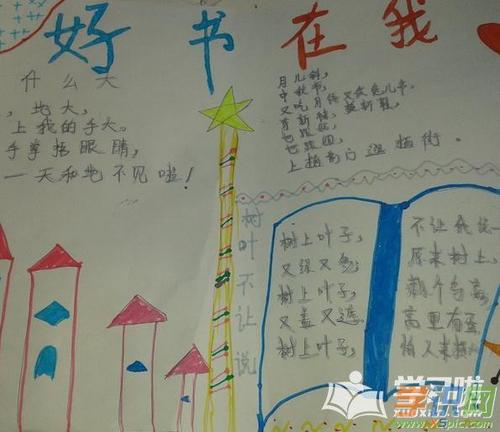 好书在我
什么大
，地大，
上我的手大。
手掌捂眼睛，
一天和地不见啦！
月儿斜，
中秋节，
又吃月饼又供兔儿爷，
穿新袜，换新鞋，
也跟
也跟
上前门逛前街。
树叶不让说
树上叶子，
又绿又多；
树上叶子，
又盖又遮；
树上叶子，
不让我说
原来树上，
有个鸟窝，
窝里有蛋
怕人来
学习啦
xuexila.com
www.xspic.com